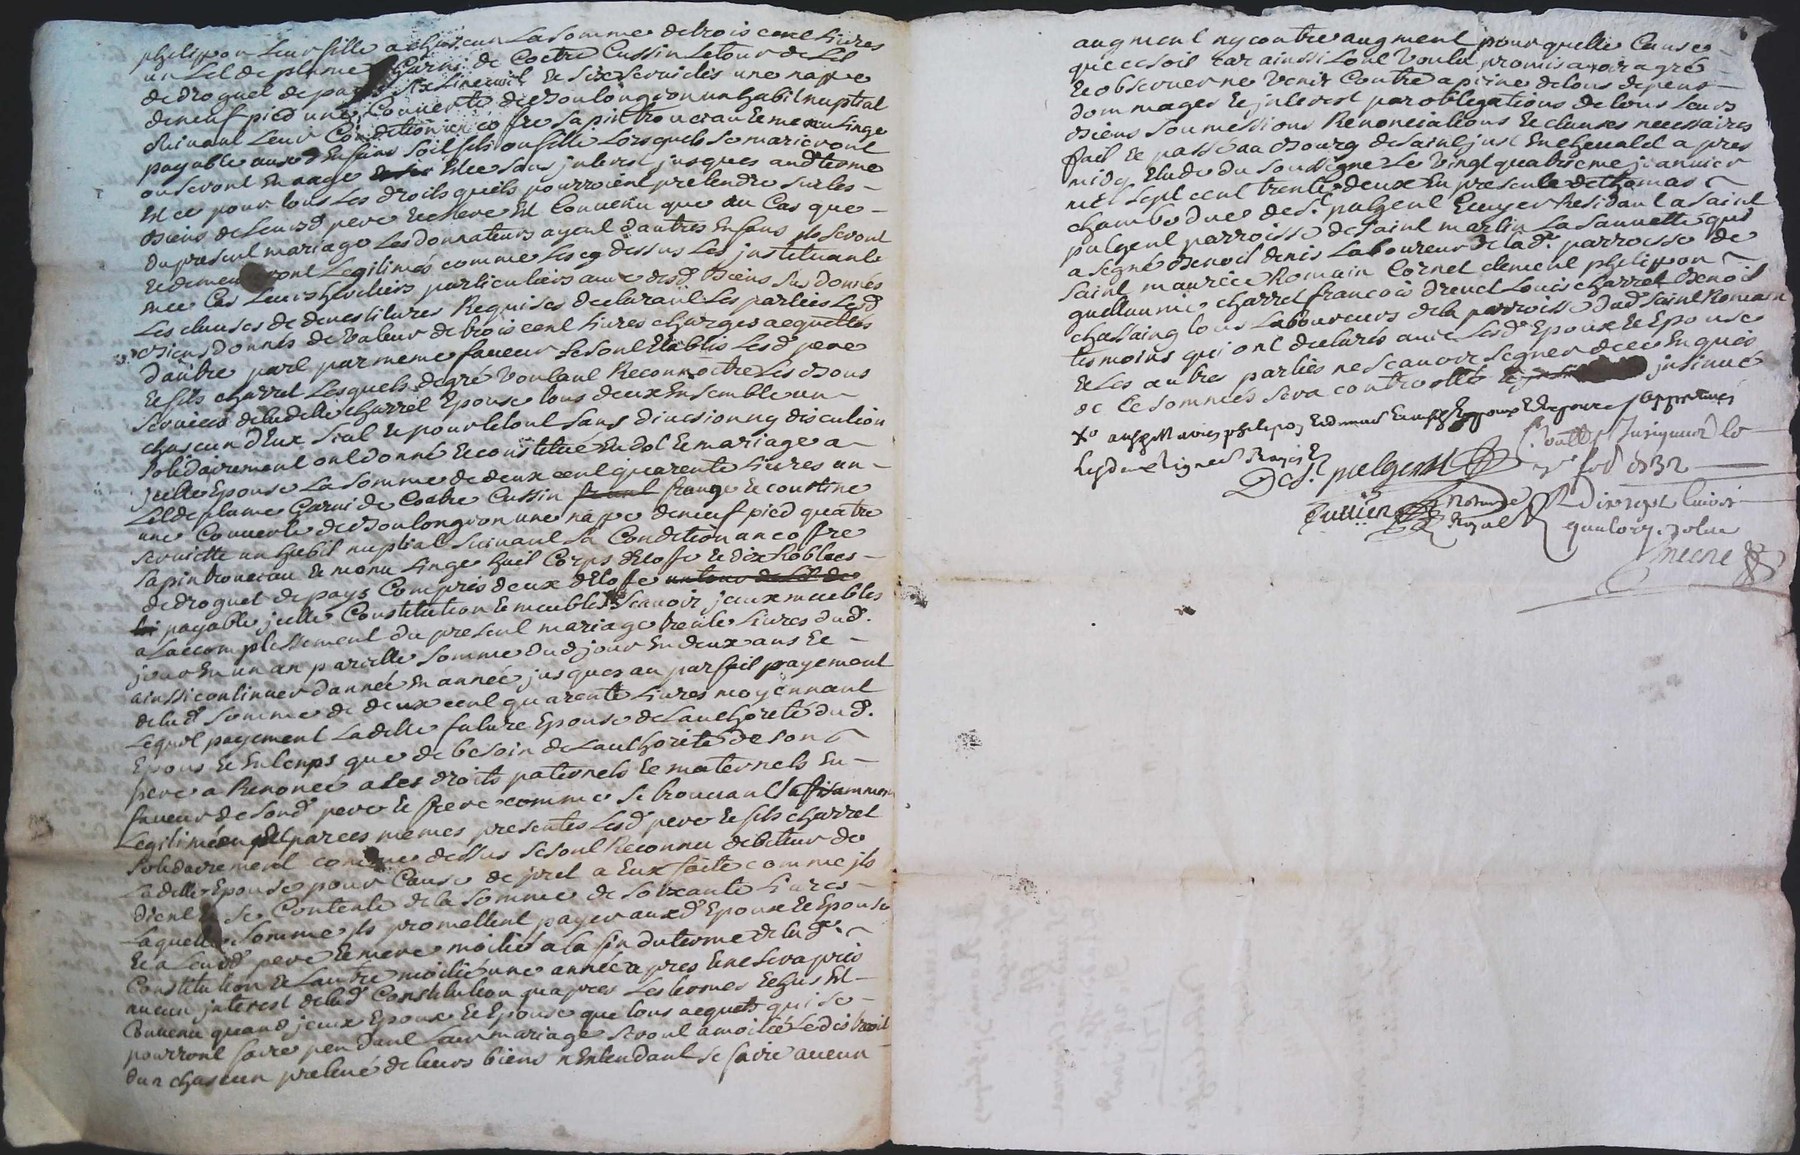 philippon leur fille a chascun La somme de trois cent Livres
un Lit de plume Garni de Coetre Cussin Le tour de Lit
de droguet de pays six Linceuil et six serviettes une nappe
de neuf pied une Couverte de Boulongion un habit nuptial
suivant Leur Condition un coffre sapin trouvera et menu Linge
payable auxd Enfans soit fils ou fille Lorsquils se marieront
ou seront En aage et ce sans jnterest jusques aud terme
Et ce pour tous Les droits quils pourroient pretendre sur les
Biens de Leursd pere et mere Est Convenu que au Cas que
du present mariage Les donnateurs ayent dautres Enfans jls seront
Legitimés comme Les cy dessus Les justituants
mee Cas Leurs heritiers particuliers aux desd Biens sus donnés
Les clauses de devestitures Requises declarant Les parties Lesd
Biens donnés de valeur de trois cent Livres charges acquittés
dautre part par meme faveur se sont Etablis Lesd pere
et fils charret Lesquels de gré voulant Reconnoitre Les Bons
services de ladite charret Epouse tous deux Ensemble un
chascun dEux seul et pour le tout sans division ny discution
solidairement ont donné et constitué En dot et mariage a
jcelle Epouse La somme de deux cent quarente Livres un
Lit de plume Garni de Coetre Cussin frange et courtine
une Couverte de Boulongion une nappe de neuf pied quatre
serviette un habit nuptial suivant sa Condition un coffre
sapin trouverau et menu Linge huit Corps dEtoffe et dix tablees
de droguet de pays Compris deux dEtoffe un tour de Lit de
payable jcelle Constitution et meubles scavoir jceux meubles
a Laccomplissement du present mariage trente Livres dud.
jour En un an pareille somme dud jour En deux ans et
ainssi continuer dannée En année jusques au parfait payement
de lad somme de deux cent quarente Livres moyennant
Lequel payement Ladite future Epouse de Lauthorité dud.
Epoux et En temps que de besoin de Lauthorité de son
pere a Renoncé a ses droits paternels et maternels En
faveur de sond pere et frere comme se trouvant suffisamment
Legitimée et par ces memes presentes Lesd pere et fils charret
solidairement comme dessus se sont Reconnu debiteur de
Ladite Epouse pour Cause de pret a Eux faite comme jls
dient et se Contente de la somme de soixante Livres
Laquelle somme jls promettent payer auxd Epoux et Epouse
et a Leursd pere et mere moitié a la fin du terme de lad.
Constitution et Lautre moitié une année apres et ne sera pris
aucun jnterest de lad Constitution quapres Les termes Echus Est
Convenu quand jceux Epoux et Epouse que tous acquets qui se
pourront faire pendant Leur mariage seront a moitié Le distrait
dun chascun prelevé de leurs biens nEntendant se faire aucun
augment ny contre augment pour quelle Cause
que ce soit Car ainssi Lont Voulu promis avoir agré
et observer ne venir Contre a peine de tous depens
dommages et jnterest par obligations de tous Leurs
Biens soumissions Renonciations et clauses necessaires
fait et passé au Bourg de saint just En chevalet apres
midy Etude du soussigné Le vingt quatrieme janvier
mil sept cent trente deux En presence de thomas
chambodue de st. pulgent Ecuyer Residant a saint
pulgent parroisse de saint martin La sauvetté qui
a segné Benoit denis Laboureur de lad. parroisse de
saint maurice Romain Cornet clement philippon
guellaume charret francois drevet Louis charret Benoit
chasaing tous Laboureurs de la parroisse dud saint Romain
tesmoins qui ont declarés avec Lesd Epoux et Epouse
et Les autres parties ne scavoir segner de ce Enquis
et Ce sommés sera controllé et jnsinué
De st. pulgent
Royal